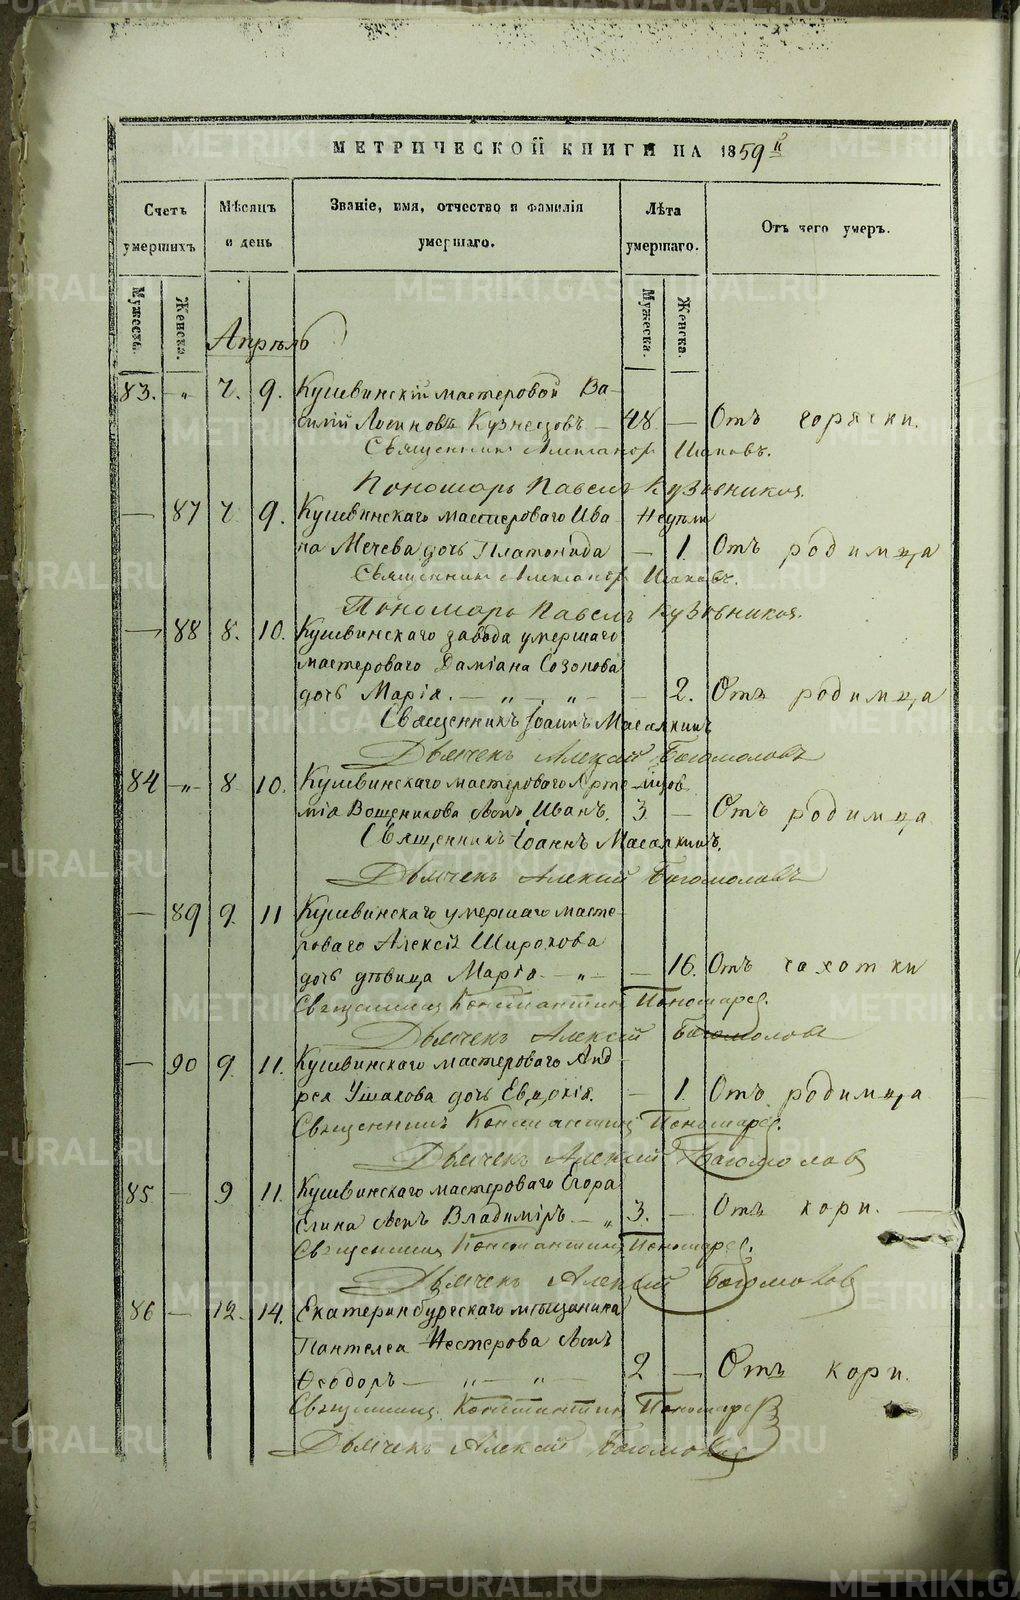 МЕТРИЧЕСКОЙ КНИГИ НА 1859й
Счетъ умершихъ
Мѣсяцъ и день
Званіе, имя, отчество и фамилія умершаго.
Лѣта умершаго.
Отъ чего умеръ.
Мужескъ.
Женска.
Мужеска.
Женска.
Апрѣль
83. „ 7. 9. Кушвинскій мастеровой Ва-
силій Кузнецовъ — 48. — Отъ горячки.
Священникъ Александръ
Пономарь Павелъ Кузовниковъ.
— 87 7 9. Кушвинскаго мастероваго Ива- Недѣли
на Мечева дочь Платонида — 1. Отъ родимца
Священникъ Александръ
Пономарь Павелъ Кузовниковъ.
— 88 8. 10. Кушвинскаго завода умершаго
мастероваго Даміана Созонова
дочь Марія. — „ — „ — — 2. Отъ родимца
Священникъ Іоаннъ Масалкинъ
Дьячекъ Алексій Богомоловъ
84 „ 8 10. Кушвинскаго мастероваго Арте-
мія Вощеникова сынъ Иванъ. 3. — Отъ родимца.
Священникъ Іоаннъ Масалкинъ.
Дьячекъ Алексій Богомоловъ
— 89 9. 11 Кушвинскаго умершаго масте-
роваго Алексія Широкова
дочь дѣвица Марія — „ — — 16. Отъ чахотки
Священникъ Константинъ Пономаревъ.
Дьячекъ Алексій Богомоловъ
— 90 9. 11. Кушвинскаго мастероваго Анд-
рея Ушакова дочь Евдокія. — 1. Отъ родимца
Священникъ Константинъ Пономаревъ.
Дьячекъ Алексій Богомоловъ
85 — 9 11. Кушвинскаго мастероваго Егора
Елина сынъ Владиміръ — „ 3. — Отъ кори. —
Священникъ Константинъ Пономаревъ.
Дьячекъ Алексій Богомоловъ
86 — 12. 14. Екатеринбургскаго мѣщанина
Пантелея Нестерова сынъ
Ѳеодоръ — „ — „ — 2 — Отъ кори.
Священникъ Константинъ Пономаревъ
Дьячекъ Алексій Богомоловъ
METRIKI.GASO-URAL.RU